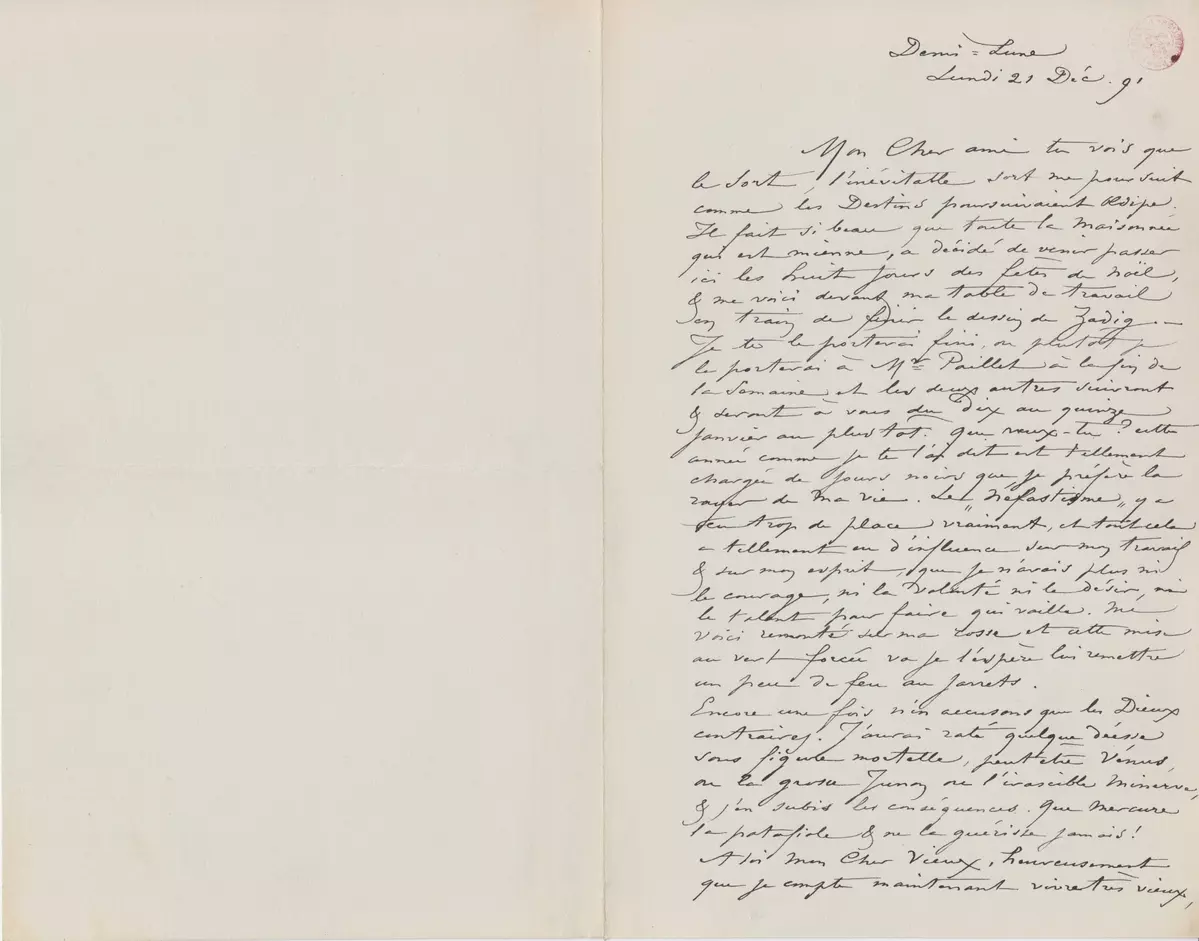 Demi-Lune
Lundi 21 Déc. 91
Mon Cher ami tu vois que
le sort, l'inévitable sort me poursuit
comme les Destins poursuivaient Œdipe.
Il fait si beau que toute la maisonnée
qui est mienne, a décidé de venir passer
ici les huit jours des fêtes de Noël,
& me voici devant ma table de travail
en train de finir le dessin de Zadig —
Je te le porterai fini, ou plutôt je
le porterai à Mr Paillet à la fin de
la semaine et les deux autres suivront
& seront à vous du Dix au quinze
Janvier au plus tôt. Que veux-tu ? cette
année comme je te l'ai dit est tellement
chargée de jours noirs que je préfère la
rayer de ma vie. Le „Néfastisme„ y a
tenu trop de place vraiment, et tout cela
a tellement eu d'influence sur mon travail
& sur mon esprit, que je n'avais plus ni
le courage, ni la volonté ni le désir, ni
le talent pour faire qui vaille. Me
voici remonté sur ma rosse et cette mise
au vert forcée va je l'espère lui remettre
un peu de feu au jarrets.
Encore une fois n'en accusons que les Dieux
contraires. J'aurai raté quelque déesse
sous figure mortelle, peut être Vénus,
ou la grosse Junon ou l'irascible Minerve,
& j'en subis les conséquences. Que Mercure
la patafiole & ne la guérisse jamais !
A toi mon Cher Vieux, heureusement
que je compte maintenant vivre très vieux,